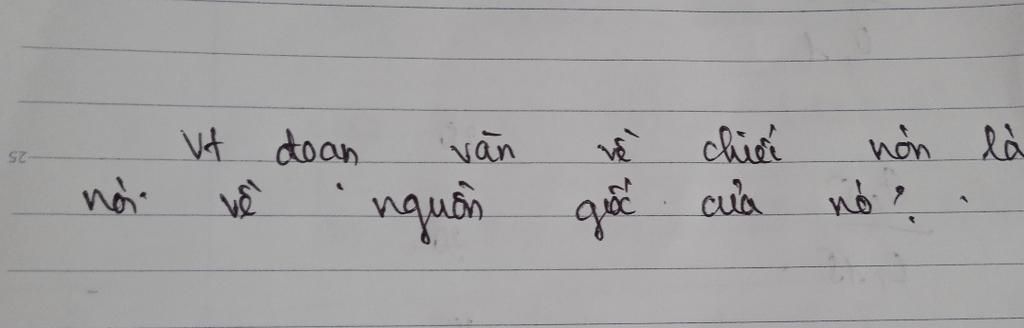 Vt đoan văn về chiếc nón lá
nói về nguồn gốc của nó?.
25